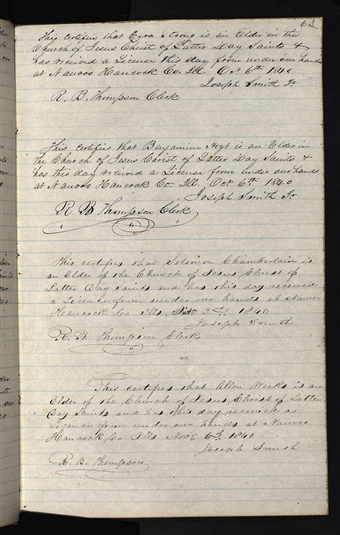 63
This certifies that Ezra Strong is an Elder in the
Church of Jesus Christ of Latter Day Saints &
has received a License this day from under our hands
at Nauvoo Hancock Co. Ill. Oct 6th 1840
Joseph Smith Jr
R. B. Thompson Clerk
This certifies that Benjamine Hoyt is an Elder in
the Church of Jesus Christ of Latter Day Saints &
has this day received a License from under our hands
at Nauvoo Hancock Co. Ill. Oct 6th. 1840
Joseph Smith Jr
R B Thompson Clerk
This certifies that Solomon Chamberlain is
an Elder of the Church of Jesus Christ of
Latter Day Saints and has this day received
a License from under our hands at Nauvoo
Hancock Co Ills 1840
Joseph Smith
R. B. Thompson Clerk
This certifies that Allen Weeks is an
Elder of the Church of Jesus Christ of Latter
Day Saints and has this day received a
License from under our hands at Nauvoo
Hancock Co Ills Nov 6th 1840
Joseph Smith
R. B. Thompson